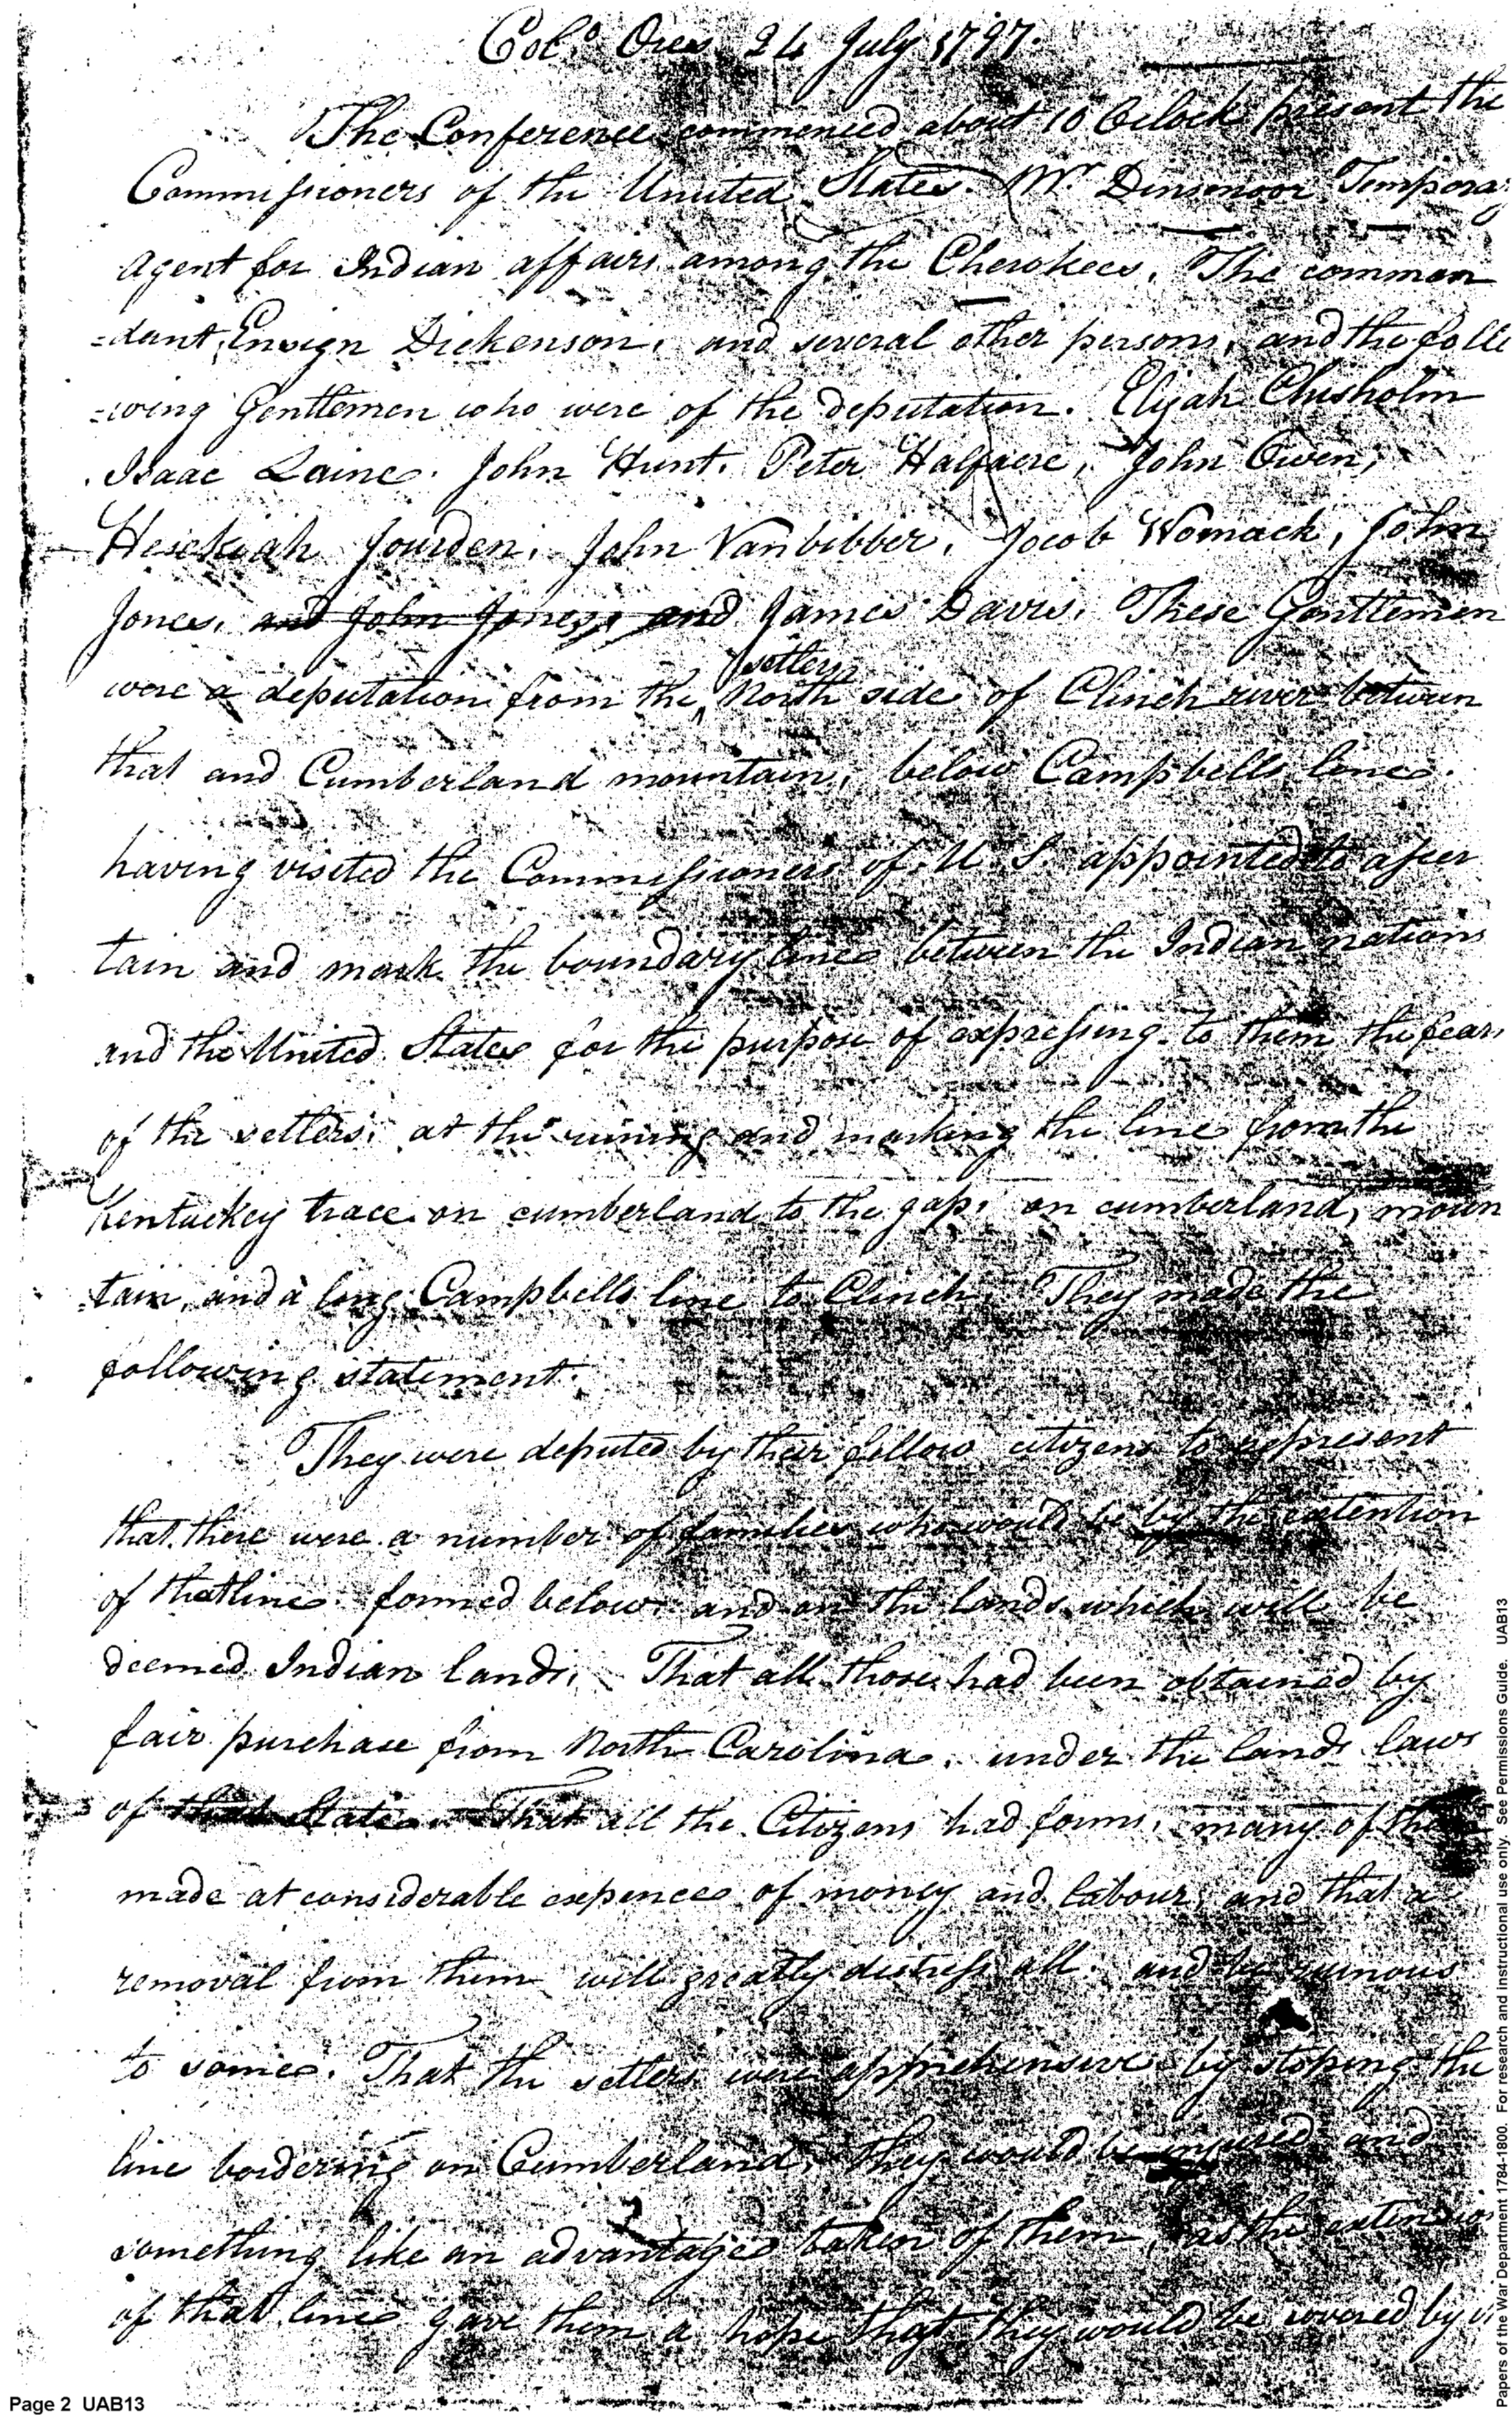 Colo. Ores 24 July 1797.
The Conference commenced about 10 Oclock present the
Commissioners of the Unuted States. Mr. Dinsmoor Tempora
agent for Indian affairs among the Cherokees. The comman
=dant, Ensign Dickenson, and several other persons, and the follo
=wing Gentlemen who were of the deputation. Elijah Chisholm
Isaac Laine. John Hunt. Peter Halfaere, John Owen,
Hesekiah Jourden, John Vanbibber, Jocob Womack, John
Jones, and John Jones, and James Davis. These Gentlemen
settlers
were a deputation from the North side of Clinch river between
that and Cumberland mountain, below Campbells line.
having visited the Commissioners of U. S. appointed to ascer
tain and mark the boundary line between the Indian nations
and the United States for the purpose of expressing to them the fears
of the setlers, at the runing and marking the line from the
Kentuckey trace on cumberland to the gap, on cumberland, moun
=tain, and a long Campbells line to Clinch. They made the
following statement.
They were deputed by their fellow citizens to represent
that there were a number of families who would be by the extention
of that line formed below and on the lands which will be
deemed Indian lands, That all those had been obtained by
fair purchase from North Carolina, under the lands laws
of that State. That all the Citizens had farms, many of them
made at considerable expence of money and labour, and that a
removal from them will greatly distress all, and be ruinous
to some. That the setlers were apprehensive by stoping the
line bordering on Cumberland, they would be injured and
something like an advantage taken of them, as the extension
of that line gave them a hope that they would be covered by
Page 2 UAB13
Papers of the War Department 1784-1800 For research and instructional use only. See Permissions Guide. UAB13